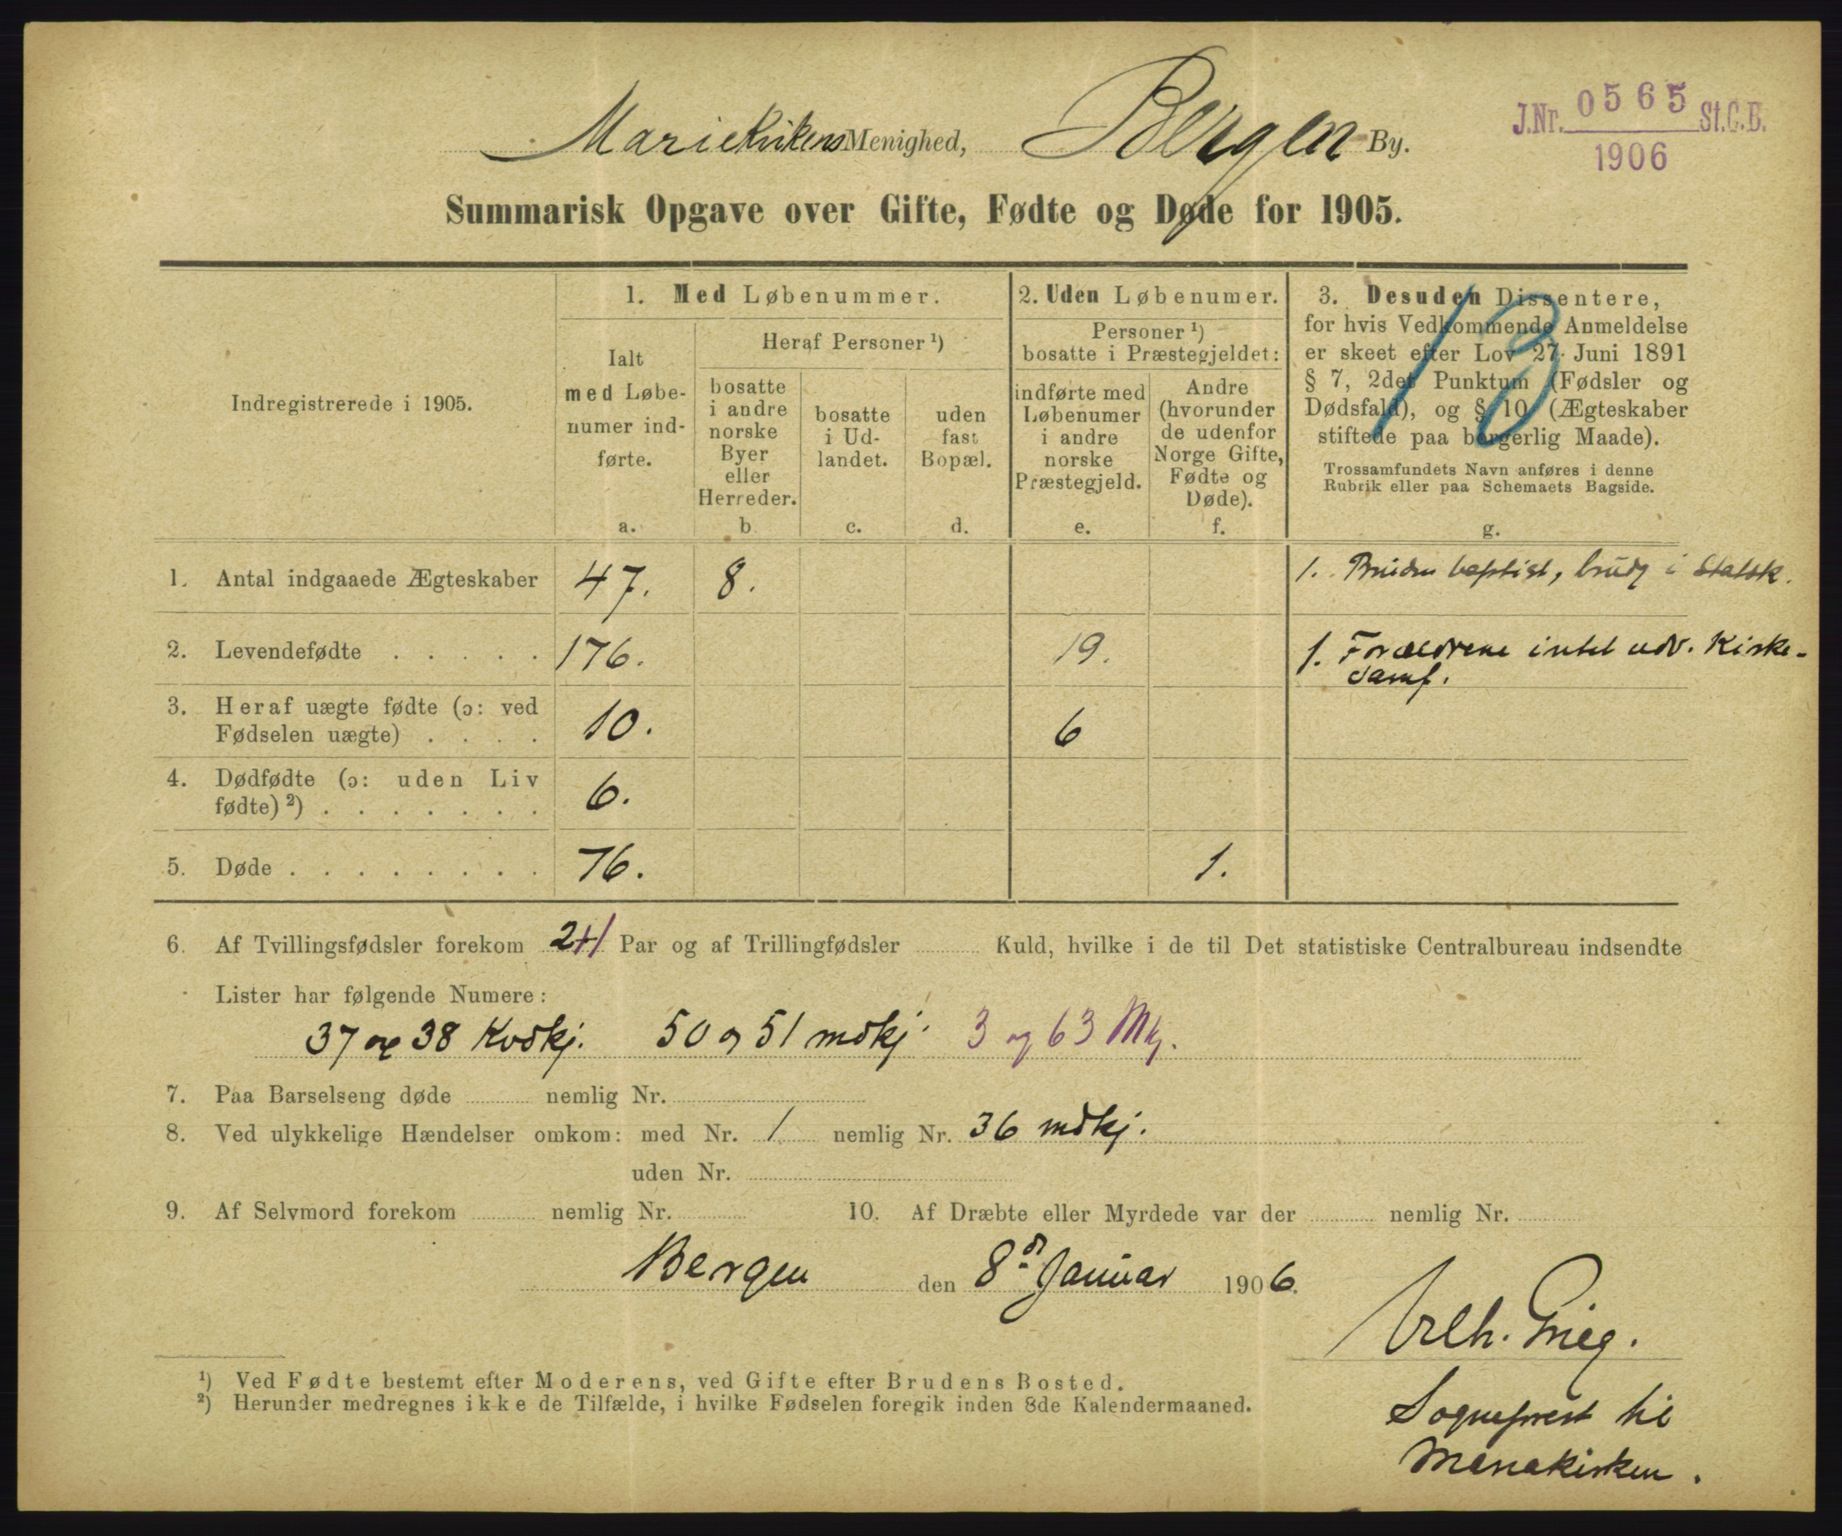 Mariekirkens Menighed, Bergen By.
J.Nr. 0565 St.C.B.
1906
Summarisk Opgave over Gifte, Fødte og Døde for 1905.
13
Indregistrerede i 1905.
1. Med Løbenummer.
Ialt
med Løbe-
numer ind-
førte.
a.
Heraf Personer ¹)
bosatte
i andre
norske
Byer
eller
Herreder.
b
bosatte
i Ud-
landet.
c.
uden
fast
Bopæl.
d.
2. Uden Løbenumer.
Personer ¹)
bosatte i Præstegjeldet:
indførte med
Løbenumer
i andre
norske
Præstegjeld.
e.
Andre
(hvorunder
de udenfor
Norge Gifte,
Fødte og
Døde).
f.
3. Desuden Dissentere,
for hvis Vedkommende Anmeldelse
er skeet efter Lov 27 Juni 1891
§ 7, 2det Punktum (Fødsler og
Dødsfald), og § 10 (Ægteskaber
stiftede paa borgerlig Maade).
Trossamfundets Navn anføres i denne
Rubrik eller paa Schemaets Bagside.
g.
1. Antal indgaaede Ægteskaber 47. 8. 1. Bruden baptist, brudg i Statsk.
2. Levendefødte . . . . . 176. 19. 1. Forældrene intet udv. Kirke-
samf.
3. Heraf uægte fødte (ɔ: ved
Fødselen uægte) . . . . 10. 6
4. Dødfødte (ɔ: uden Liv
fødte) ²) . . . . . . . 6.
5. Døde . . . . . . . . 76. 1.
6. Af Tvillingsfødsler forekom 2+1 Par og af Trillingfødsler Kuld, hvilke i de til Det statistiske Centralbureau indsendte
Lister har følgende Numere:
37 og 38 Kvdkj. 50 og 51 mdkj. 3 og 63 Mkj.
7. Paa Barselseng døde nemlig Nr.
8. Ved ulykkelige Hændelser omkom: med Nr. 1 nemlig Nr. 36 mdkj.
uden Nr.
9. Af Selvmord forekom nemlig Nr. 10. Af Dræbte eller Myrdede var der nemlig Nr.
Bergen den 8de Januar 1906.
Vilh. Grieg.
Sogneprest til
Mariakirken.
¹) Ved Fødte bestemt efter Moderens, ved Gifte efter Brudens Bosted.
²) Herunder medregnes ikke de Tilfælde, i hvilke Fødselen foregik inden 8de Kalendermaaned.